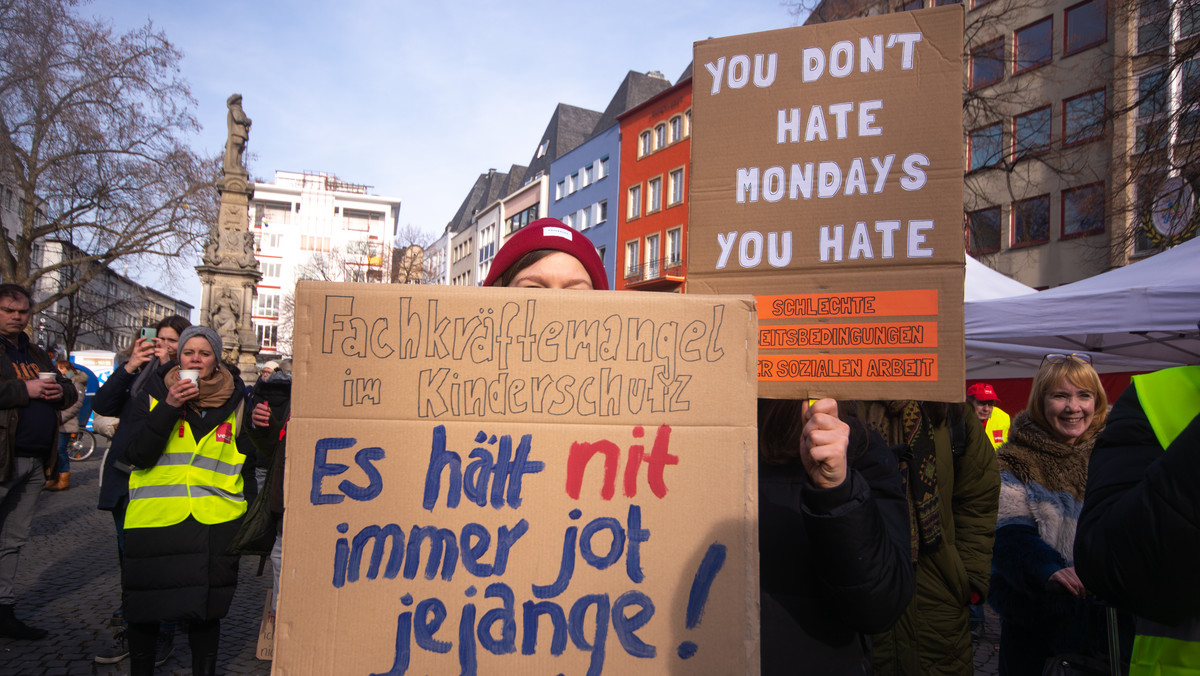 YOU DON'T
HATE
MONDAYS
YOU HATE
SCHLECHTE
EITSBEDINGUNGEN
ER SOZIALEN ARBEIT
Fachkräftemangel
im Kinderschutz
Es hätt nit
immer jot
jejange!